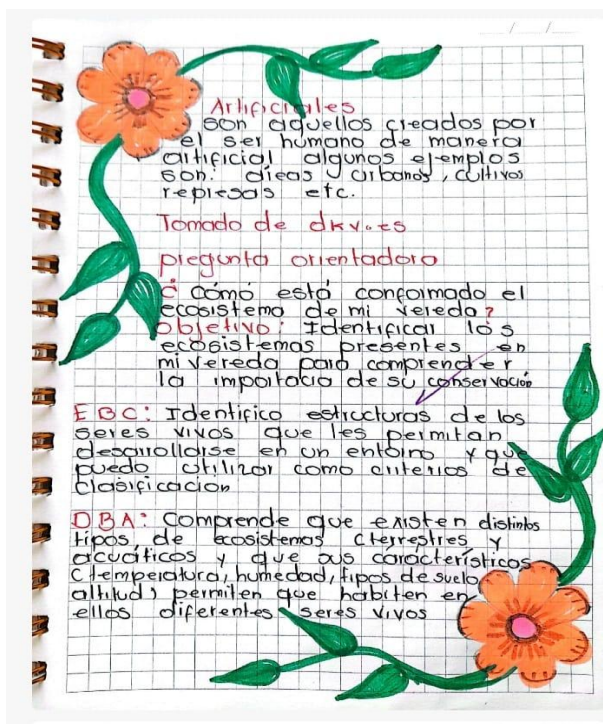 Artificiales
son aquellos creados por
el ser humano de manera
artificial algunos ejemplos
son: areas urbanos, cultivos
represas etc.
Tomado de dkv.es
pregunta orientadora
¿ Cómo está conformado el
ecosistema de mi vereda?
Objetivo: Identificar los
ecosistemas presentes en
mi vereda para comprender
la importacia de su conservación
EBC: Identifico estructuras de los
seres vivos que les permitan
desarrollarse en un entorno y que
puedo utilizar como criterios de
clasificación
DBA: Comprende que existen distintos
tipos de ecosistemas (terrestres y
acuáticos y que sus carácterísticos
(temperatura, humedad, tipos de suelo
altitud) permiten que habiten en
ellos diferentes seres vivos